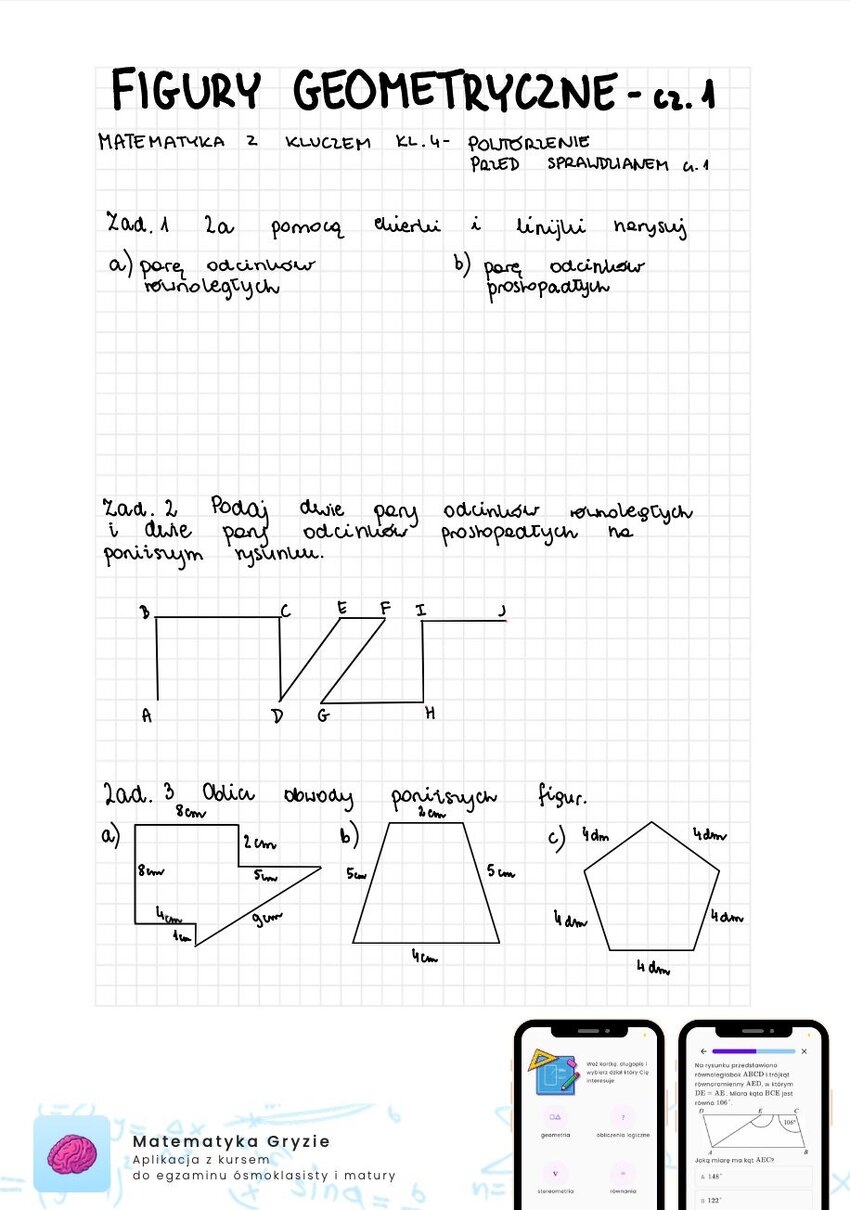 FIGURY GEOMETRYCZNE - cz. 1
MATEMATYKA Z KLUCZEM KL. 4 - POWTÓRZENIE
PRZED SPRAWDZIANEM cz. 1
Zad. 1 Za pomocą ekierki i linijki narysuj
a) parę odcinków
równoległych
b) parę odcinków
prostopadłych
Zad. 2 Podaj dwie pary odcinków równoległych
i dwie pary odcinków prostopadłych na
poniższym rysunku.
B C E F I J
A D G H
Zad. 3 Oblicz obwody poniższych figur.
a) 8cm
2cm
8cm
5cm
4cm
1cm
9cm
b) 2cm
5cm
5cm
4cm
c) 4dm
4dm
4dm
4dm
4dm
Weź kartkę, długopis i
wybierz dział który Cię
interesuje
geometria
?
obliczenia logiczne
V
stereometria
=
równania
Na rysunku przedstawiono
równoległobok ABCD i trójkąt
równoramienny AED, w którym
DE = AE. Miara kąta BCE jest
równa 106°.
D E C
106°
A B
Jaką miarę ma kąt AEC?
A 148°
B 122°
Matematyka Gryzie
Aplikacja z kursem
do egzaminu ósmoklasisty i matury